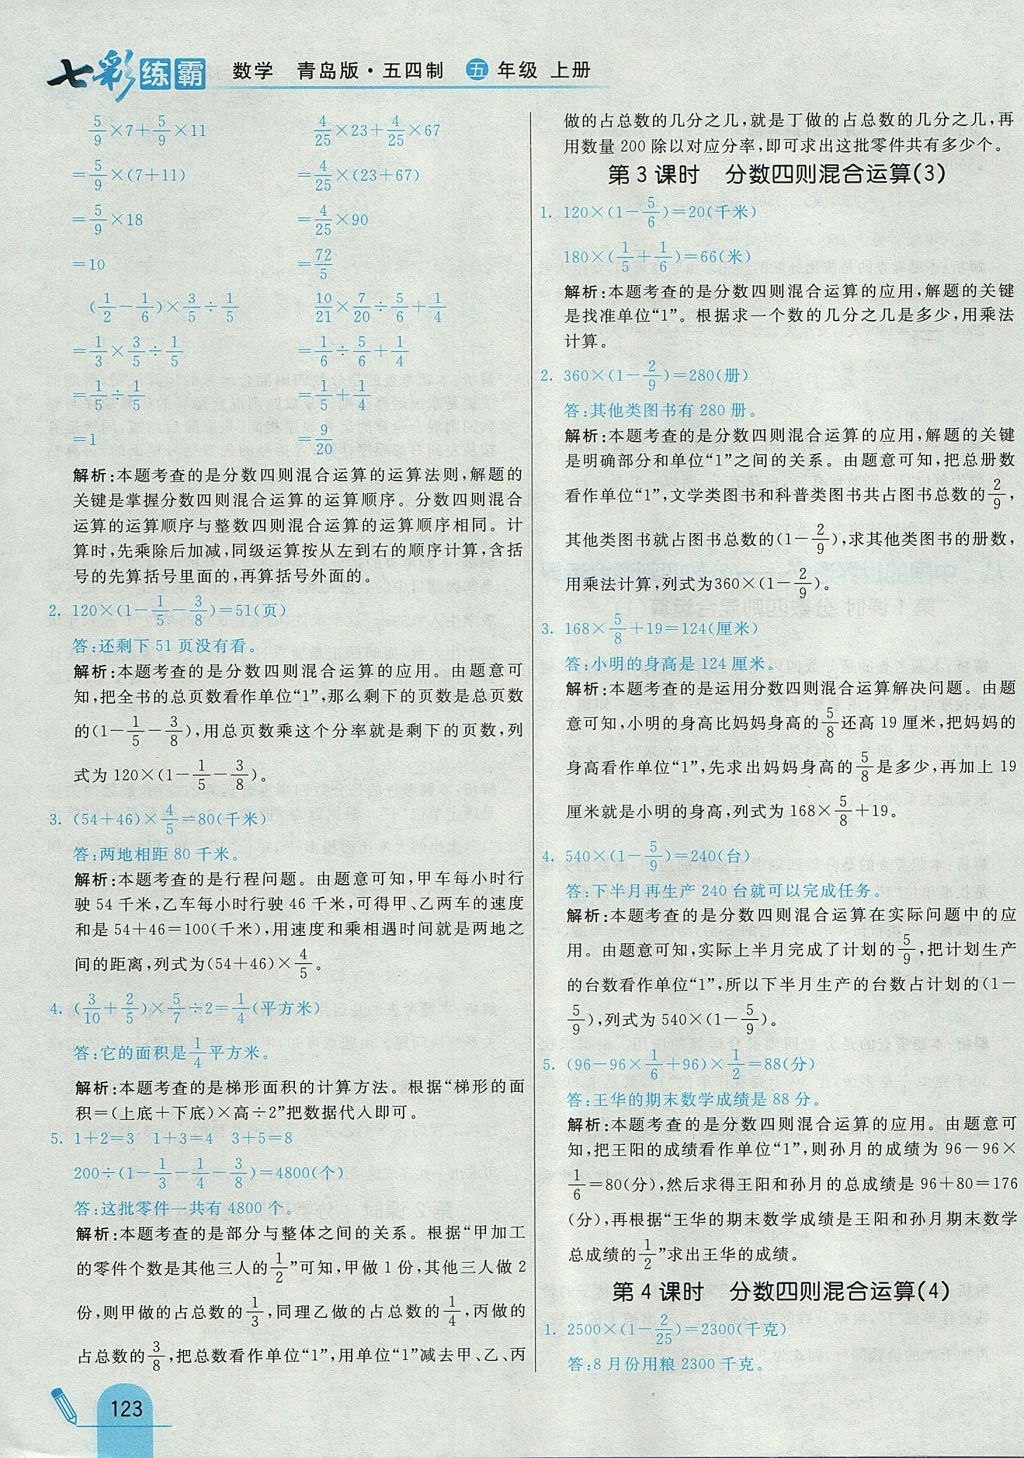 七彩练霸 数学 青岛版·五四制 五年级 上册
5/9×7+5/9×11    4/25×23+4/25×67
=5/9×(7+11)    =4/25×(23+67)
=5/9×18    =4/25×90
=10    =72/5
(1/2-1/6)×3/5÷1/5    10/21×7/20÷5/6+1/4
=1/3×3/5÷1/5    =1/6÷5/6+1/4
=1/5÷1/5    =1/5+1/4
=1    =9/20
解析:本题考查的是分数四则混合运算的运算法则,解题的
关键是掌握分数四则混合运算的运算顺序。分数四则混合
运算的运算顺序与整数四则混合运算的运算顺序相同。计
算时,先乘除后加减,同级运算按从左到右的顺序计算,含括
号的先算括号里面的,再算括号外面的。
2. 120×(1-1/5-3/8)=51(页)
答:还剩下 51 页没有看。
解析:本题考查的是分数四则混合运算的应用。由题意可
知,把全书的总页数看作单位“1”,那么剩下的页数是总页数
的(1-1/5-3/8),用总页数乘这个分率就是剩下的页数,列
式为 120×(1-1/5-3/8)。
3. (54+46)×4/5=80(千米)
答:两地相距 80 千米。
解析:本题考查的是行程问题。由题意可知,甲车每小时行
驶 54 千米,乙车每小时行驶 46 千米,可得甲、乙两车的速度
和是 54+46=100(千米),用速度和乘相遇时间就是两地之
间的距离,列式为(54+46)×4/5。
4. (3/10+2/5)×5/7÷2=1/4(平方米)
答:它的面积是1/4平方米。
解析:本题考查的是梯形面积的计算方法。根据“梯形的面
积=(上底+下底)×高÷2”把数据代入即可。
5. 1+2=3 1+3=4 3+5=8
200÷(1-1/3-1/4-3/8)=4800(个)
答:这批零件一共有 4800 个。
解析:本题考查的是部分与整体之间的关系。根据“甲加工
的零件个数是其他三人的1/2”可知,甲做 1 份,其他三人做 2
份,则甲做的占总数的1/3,同理乙做的占总数的1/4,丙做的
占总数的3/8,把总数看作单位“1”,用单位“1”减去甲、乙、丙
123
做的占总数的几分之几,就是丁做的占总数的几分之几,再
用数量 200 除以对应分率,即可求出这批零件共有多少个。
第 3 课时 分数四则混合运算(3)
1. 120×(1-5/6)=20(千米)
180×(1/5+1/6)=66(米)
解析:本题考查的是分数四则混合运算的应用,解题的关键
是找准单位“1”。根据求一个数的几分之几是多少,用乘法
计算。
2. 360×(1-2/9)=280(册)
答:其他类图书有 280 册。
解析:本题考查的是分数四则混合运算的应用,解题的关键
是明确部分和单位“1”之间的关系。由题意可知,把总册数
看作单位“1”,文学类图书和科普类图书共占图书总数的2/9,
其他类图书就占图书总数的(1-2/9),求其他类图书的册数,
用乘法计算,列式为360×(1-2/9)。
3. 168×5/8+19=124(厘米)
答:小明的身高是 124 厘米。
解析:本题考查的是运用分数四则混合运算解决问题。由题
意可知,小明的身高比妈妈身高的5/8还高 19 厘米,把妈妈的
身高看作单位“1”,先求出妈妈身高的5/8是多少,再加上 19
厘米就是小明的身高,列式为 168×5/8+19。
4. 540×(1-5/9)=240(台)
答:下半月再生产 240 台就可以完成任务。
解析:本题考查的是分数四则混合运算在实际问题中的应
用。由题意可知,实际上半月完成了计划的5/9,把计划生产
的台数看作单位“1”,所以下半月生产的台数占计划的(1-
5/9),列式为 540×(1-5/9)。
5. (96-96×1/6+96)×1/2=88(分)
答:王华的期末数学成绩是 88 分。
解析:本题考查的是分数四则混合运算的应用。由题意可
知,把王阳的成绩看作单位“1”,则孙月的成绩为 96-96×
1/6=80(分),然后求得王阳和孙月的总成绩是 96+80=176
(分),再根据“王华的期末数学成绩是王阳和孙月期末数学
总成绩的1/2”求出王华的成绩。
第 4 课时 分数四则混合运算(4)
1. 2500×(1-2/25)=2300(千克)
答:8 月份用粮 2300 千克。